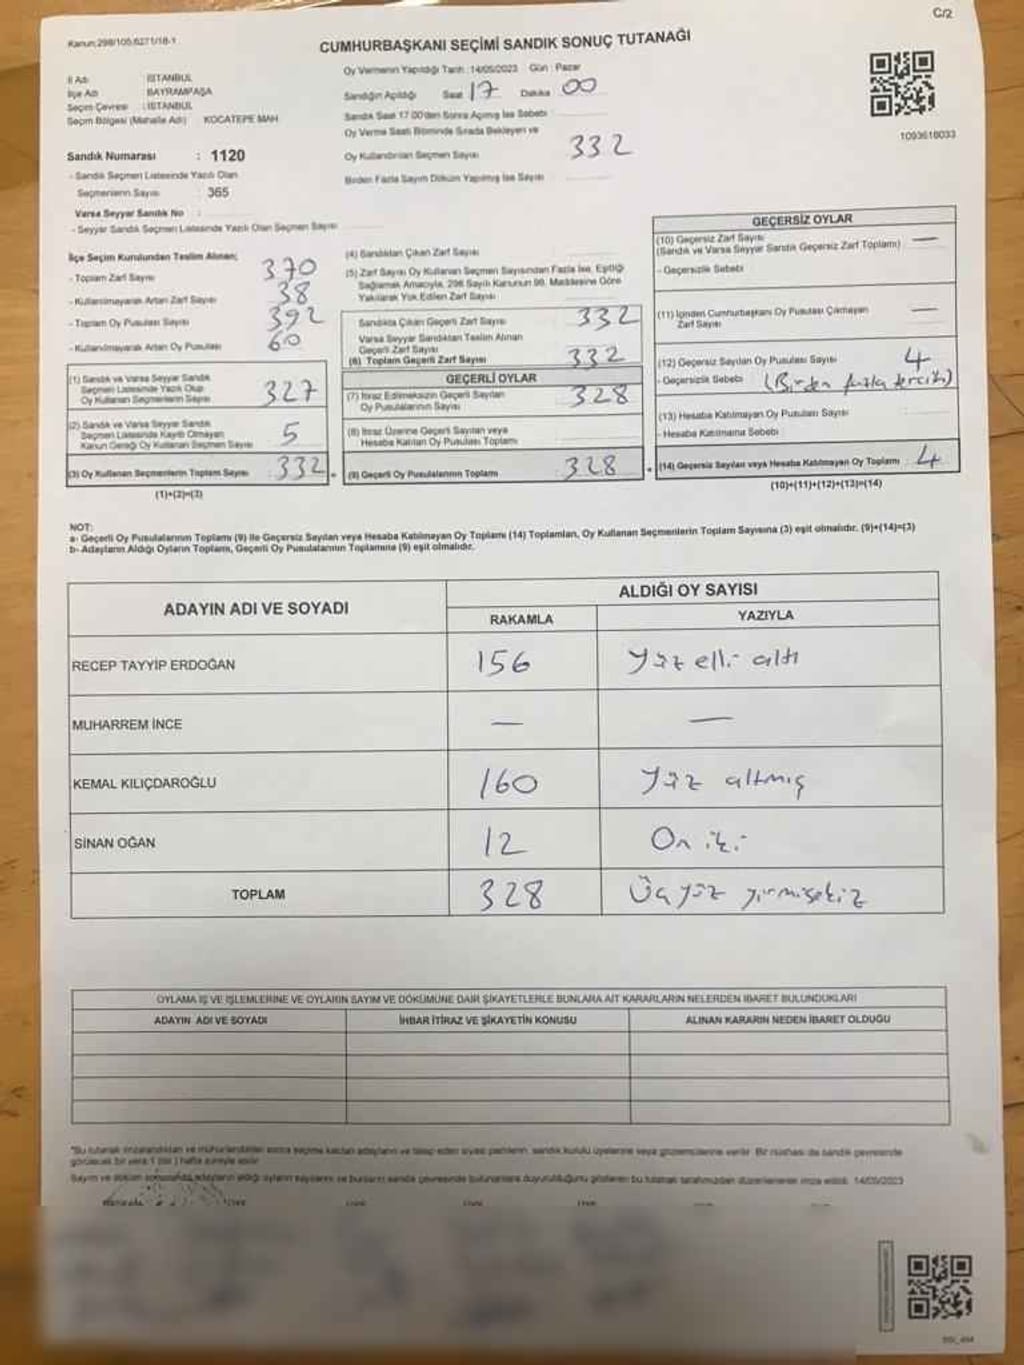 C/2
Kanun:298/105,6271/18-1
CUMHURBAŞKANI SEÇİMİ SANDIK SONUÇ TUTANAĞI
İl Adı : İSTANBUL
İlçe Adı : BAYRAMPAŞA
Seçim Çevresi : İSTANBUL
Seçim Bölgesi (Mahalle Adı) KOCATEPE MAH
Oy Vermenin Yapıldığı Tarih :14/05/2023 Gün : Pazar
Sandığın Açıldığı Saat 17 Dakika 00
Sandık Saat 17.00'den Sonra Açılmış İse Sebebi
Oy Verme Saati Bitiminde Sırada Bekleyen ve
Oy Kullandırılan Seçmen Sayısı 332
Birden Fazla Sayım Döküm Yapılmış İse Sayısı
1093618033
Sandık Numarası : 1120
- Sandık Seçmen Listesinde Yazılı Olan
Seçmenlerin Sayısı : 365
Varsa Seyyar Sandık No :
- Seyyar Sandık Seçmen Listesinde Yazılı Olan Seçmen Sayısı
İlçe Seçim Kurulundan Teslim Alınan;
- Toplam Zarf Sayısı 370
- Kullanılmayarak Artan Zarf Sayısı 38
- Toplam Oy Pusulası Sayısı 392
- Kullanılmayarak Artan Oy Pusulası 60
(1) Sandık ve Varsa Seyyar Sandık
Seçmen Listesinde Yazılı Olup
Oy Kullanan Seçmenlerin Sayısı 327
(2) Sandık ve Varsa Seyyar Sandık
Seçmen Listesinde Kayıtlı Olmayan
Kanun Gereği Oy Kullanan Seçmen Sayısı 5
(3) Oy Kullanan Seçmenlerin Toplam Sayısı 332
(1)+(2)=(3)
(4) Sandıktan Çıkan Zarf Sayısı
(5) Zarf Sayısı Oy Kullanan Seçmen Sayısından Fazla İse, Eşitliği
Sağlamak Amacıyla, 298 Sayılı Kanunun 98. Maddesine Göre
Yakılarak Yok Edilen Zarf Sayısı
Sandıkta Çıkan Geçerli Zarf Sayısı 332
Varsa Seyyar Sandıktan Teslim Alınan
Geçerli Zarf Sayısı
(6) Toplam Geçerli Zarf Sayısı 332
GEÇERLİ OYLAR
(7) İtiraz Edilmeksizin Geçerli Sayılan
Oy Pusulalarının Sayısı 328
(8) İtiraz Üzerine Geçerli Sayılan veya
Hesaba Katılan Oy Pusulası Toplamı
(9) Geçerli Oy Pusulalarının Toplamı 328
GEÇERSİZ OYLAR
(10) Geçersiz Zarf Sayısı —
(Sandık ve Varsa Seyyar Sandık Geçersiz Zarf Toplamı)
- Geçersizlik Sebebi
(11) İçinden Cumhurbaşkanı Oy Pusulası Çıkmayan
Zarf Sayısı —
(12) Geçersiz Sayılan Oy Pusulası Sayısı 4
- Geçersizlik Sebebi (Birden fazla tercih)
(13) Hesaba Katılmayan Oy Pusulası Sayısı
- Hesaba Katılmama Sebebi
(14) Geçersiz Sayılan veya Hesaba Katılmayan Oy Toplamı : 4
(10)+(11)+(12)+(13)=(14)
NOT:
a- Geçerli Oy Pusulalarının Toplamı (9) ile Geçersiz Sayılan veya Hesaba Katılmayan Oy Toplamı (14) Toplamları, Oy Kullanan Seçmenlerin Toplam Sayısına (3) eşit olmalıdır. (9)+(14)=(3)
b- Adayların Aldığı Oyların Toplamı, Geçerli Oy Pusulalarının Toplamına (9) eşit olmalıdır.
ADAYIN ADI VE SOYADI
ALDIĞI OY SAYISI
RAKAMLA YAZIYLA
RECEP TAYYİP ERDOĞAN 156 Yüz elli altı
MUHARREM İNCE — —
KEMAL KILIÇDAROĞLU 160 Yüz altmış
SİNAN OĞAN 12 On iki
TOPLAM 328 Üç yüz yirmisekiz
OYLAMA İŞ VE İŞLEMLERİNE VE OYLARIN SAYIM VE DÖKÜMÜNE DAİR ŞİKAYETLERLE BUNLARA AİT KARARLARIN NELERDEN İBARET BULUNDUKLARI
ADAYIN ADI VE SOYADI İHBAR İTİRAZ VE ŞİKAYETİN KONUSU ALINAN KARARIN NEDEN İBARET OLDUĞU
"Bu tutanak imzalandıktan ve mühürlendikten sonra seçime katılan adayların ve talep eden siyasi partilerin, sandık kurulu üyelerine veya gözlemcilerine verilir. Bir nüshası da sandık çevresinde
görülecek bir yere 1 (bir ) hafta süreyle asılır
Sayım ve döküm sonucunda adayların aldığı oyların sayılarını ve bunların sandık çevresinde bulunanlara duyurulduğunu gösteren bu tutanak tarafımızdan düzenlenerek imza edildi. 14/05/2023